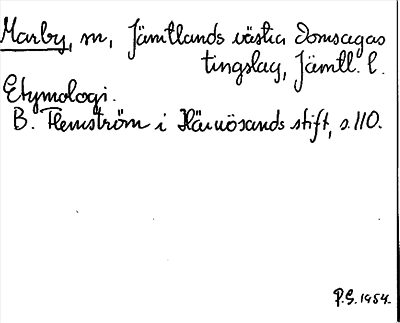 Marby, sn, Jämtlands västra domsagas
tingslag, Jämtl. l.
Etymologi.
B. Flemström i Härnösands stift, s. 110.
P.S. 1954.